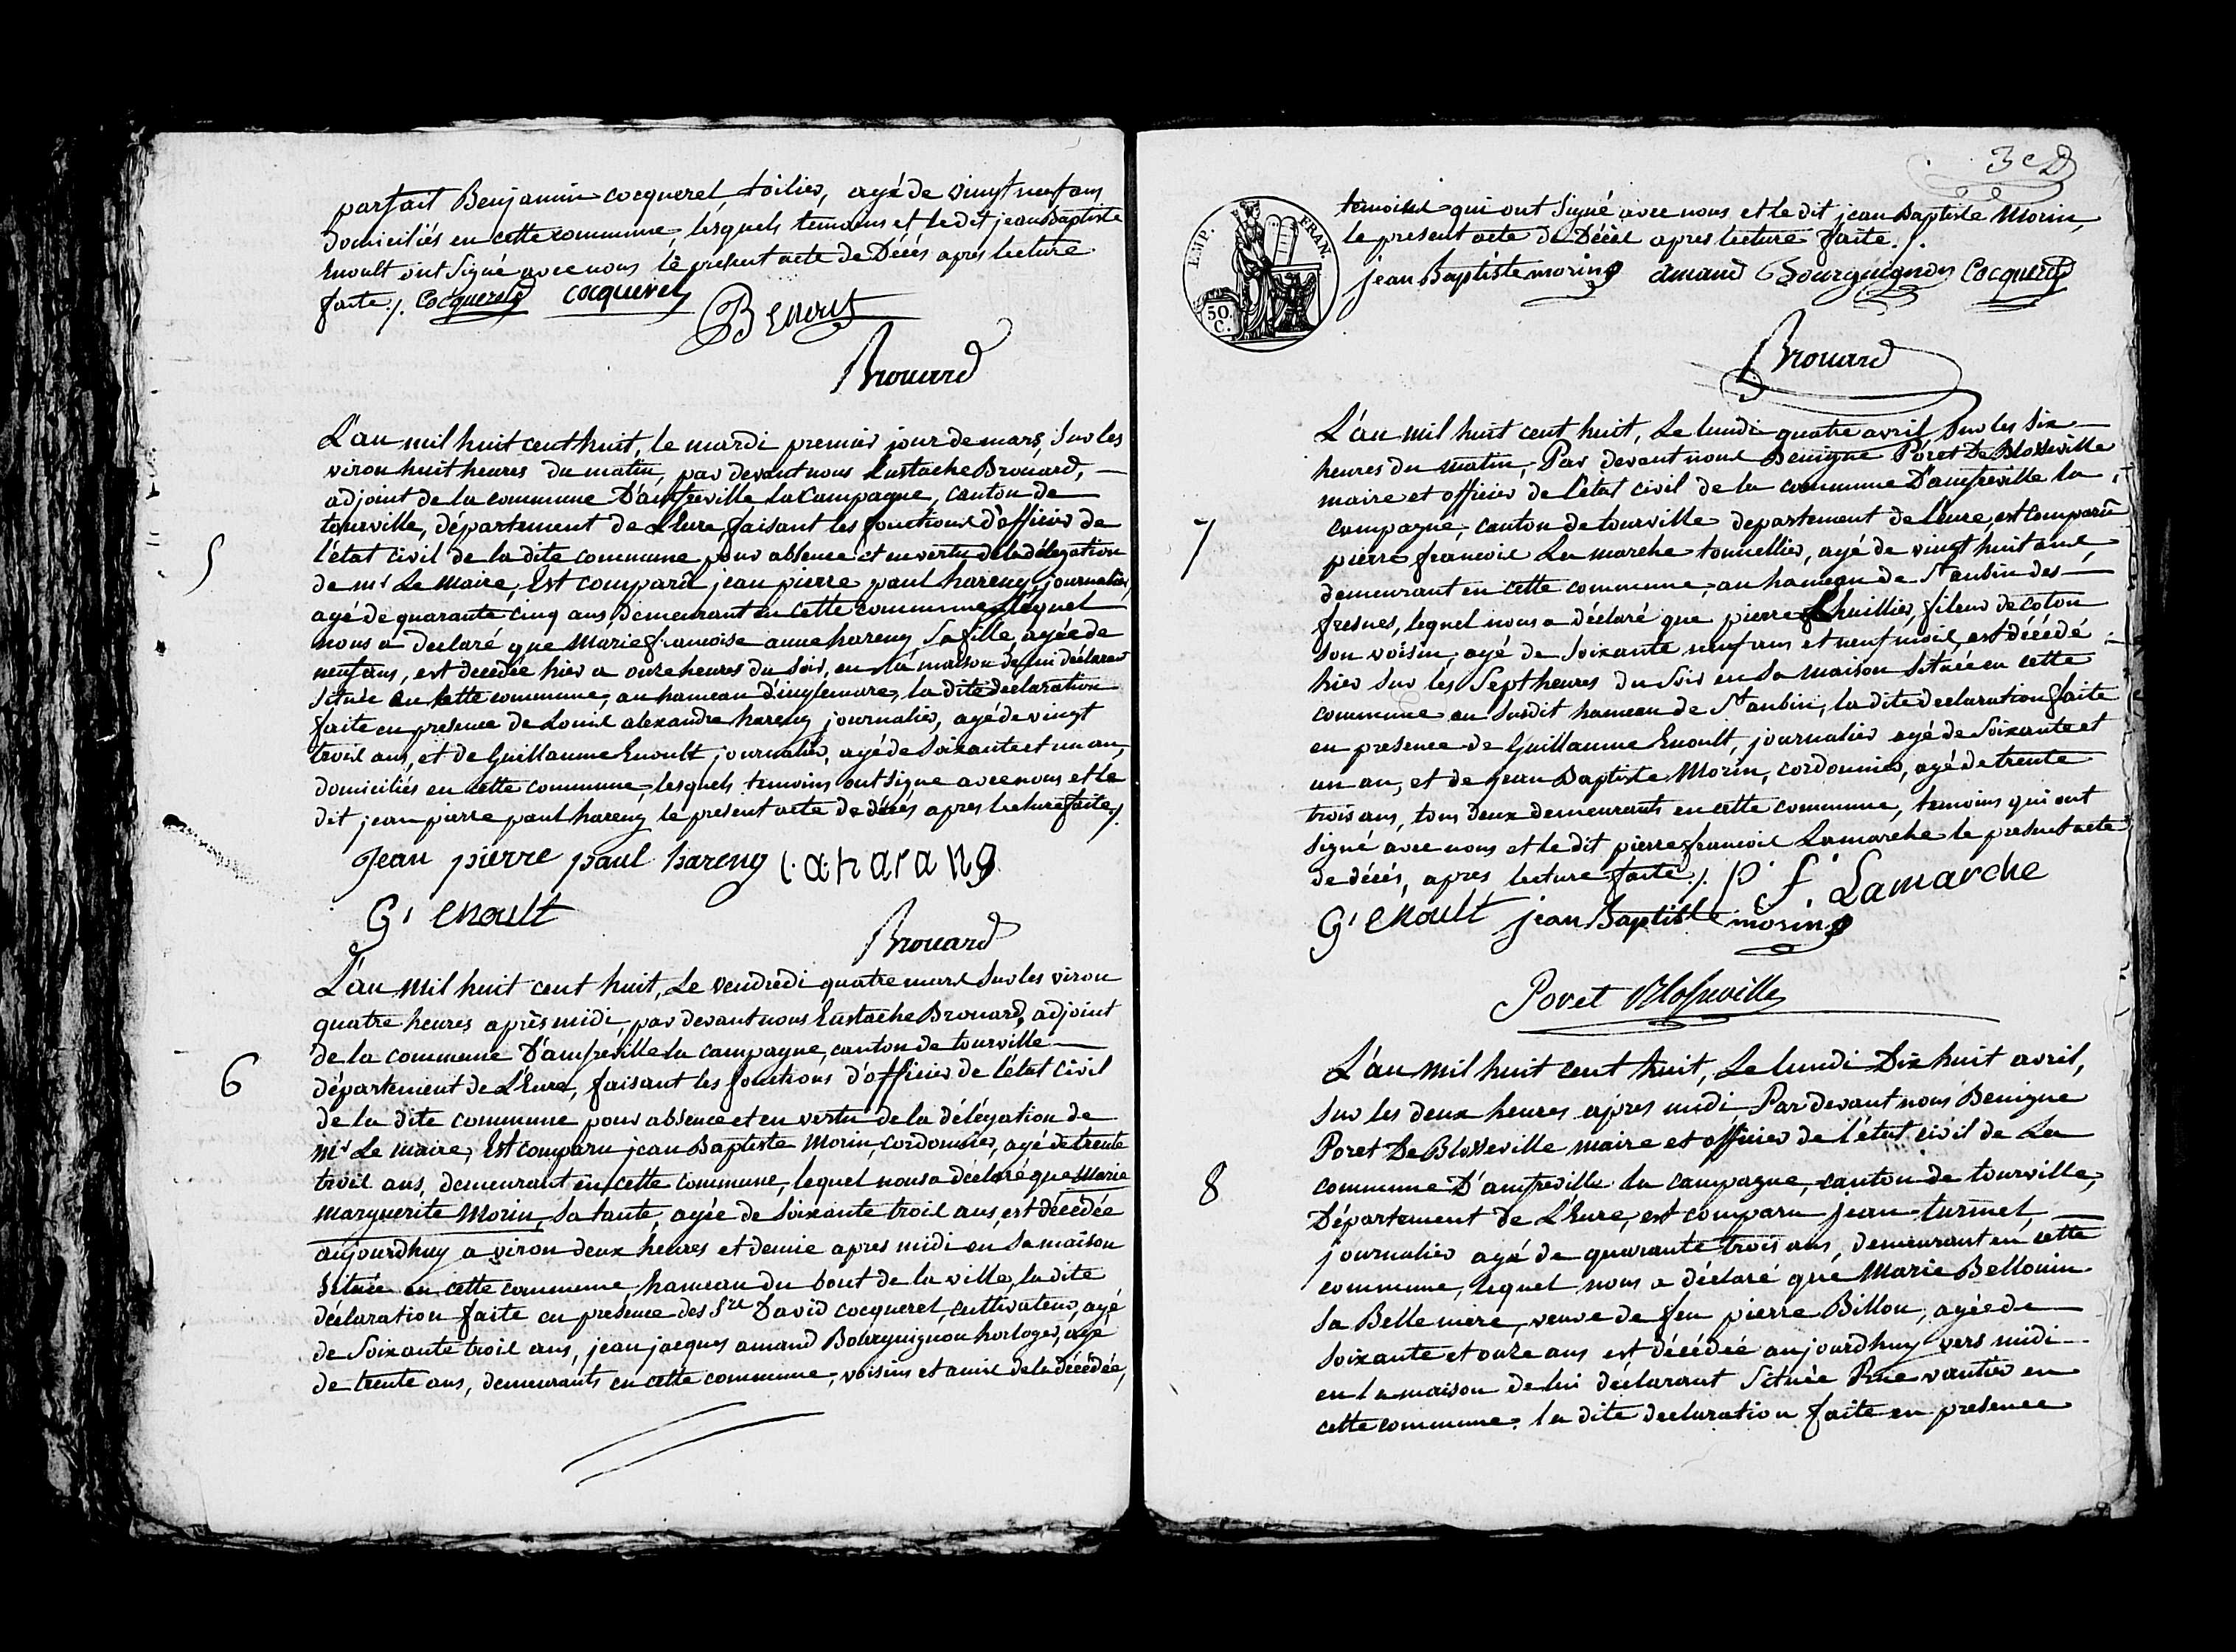 parfait Benjamin cocquerel, toilier, agé de vingt neuf ans
domiciliés en cette commune, lesquels temoins et le dit jean Baptiste
Enoult ont signé avec nous le present acte de Décés aprés lecture
faite ./. Cocquerel cocquerel
B Enoult
Brouard
L'an mil huit cent huit, le mardi premier jour de mars, sur les
viron huit heures du matin, par devant nous Eustache Brouard,
adjoint de la commune D'amfreville la Campagne, canton de
tourville, département de L'eure, faisant les fonctions d'officier de
l'état civil de la dite commune pour absence et en vertu de la délégation
de mr Le Maire, Est comparû jean pierre paul hareng journalier,
agé de quarante cinq ans, demeurant en cette commune, lequel
nous a declaré que Marie francoise anne hareng sa fille, agée de
neuf ans, est decedée hier a onze heures du soir, en la maison de lui déclarant
située en cette commune, au hameau d'inglemare, la dite declaration
faite en presence de Louis alexandre hareng journalier, agé de vingt
trois ans, et de Guillaume Enoult journalier, agé de soixante et un an,
domiciliés en cette commune, lesquels temoins ont signe avec nous et le
dit jean pierre paul hareng le present acte de décés apres lecture faite ./.
5
Jean pierre paul hareng l.a harang
G. enoult
Brouard
L'an mil huit cent huit, Le vendredi quatre mars sur les viron
quatre heures après midi, par devant nous Eustache Brouard, adjoint
de la commune D'amfreville la campagne, canton de tourville
département de L'Eure, faisant les fonctions d'officier de l'état civil
6
de la dite commune pour absence et en vertu de la délégation de
mr Le maire, Est comparu jean Baptiste Morin, cordonnier, agé de trente
trois ans, demeurant en cette commune, lequel nous a declaré que Marie
marguerite Morin, sa tante, agée de soixante trois ans, est décédée
aujourdhuy a viron deux heures et demie apres midi en sa maison
située en cette commune, hameau du bout de la ville, la dite
déclaration faite en presence des Srs David cocquerel, cultivateur, agé
de soixante trois ans, jean jacques amand Bourguignon horloger, agé
de trente ans, demeurants en cette commune, voisins et amis de la décédée,
3e
EMP. FRAN.
50. C.
temoins qui ont signé avec nous et le dit jean Baptiste Morin,
le present acte de Décés apres lecture faite ./.
jean Baptiste morin amand Bourguignon Cocquerel
Brouard
L'an mil huit cent huit, Le lundi quatre avril sur les six
heures du matin, Par devant nous Benigne Poret De Blosseville
maire et officier de l'état civil de la commune D'amfreville la
campagne, canton de tourville departement de l'eure, est comparû
7
pierre francois Lamarche tonnellier, agé de vingt huit ans,
demeurant en cette commune, au hameau de St aubin des
fresnes, lequel nous a déclaré que pierre Lhuillier, fileur de coton
son voisin, agé de soixante neuf ans et neuf mois, est décédé
hier sur les sept heures du soir en sa maison située en cette
commune au susdit hameau de St aubin, la dite declaration faite
en presence de Guillaume Enoult, journalier agé de soixante et
un an, et de jean Baptiste Morin, cordonnier, agé de trente
trois ans, tous deux demeurants en cette commune, temoins qui ont
signé avec nous et le dit pierre francois Lamarche le present acte
de décés, apres lecture faite ./. P. f. Lamarche
G. enoult jean Baptiste morin
Poret Blosseville
L'an mil huit cent huit, Le lundi Dix huit avril,
sur les deux heures apres midi Par devant nous Benigne
Poret De Blosseville maire et officier de l'état civil de La
8
commune D'amfreville la campagne, canton de tourville,
Département de L'Eure, est comparu jean turmel
journalier agé de quarante trois ans, demeurant en cette
commune, lequel nous a déclaré que Marie Bellouin
sa Belle mere, veuve de feu pierre Billon, agée de
soixante et onze ans est décédée aujourdhuy vers midi
en la maison de lui déclarant située Rue vautier en
cette commune. la dite declaration faite en presence